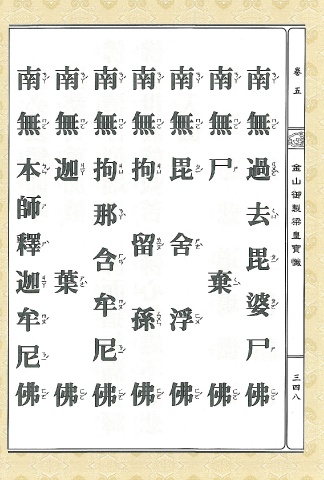 卷五
金山御製梁皇寶懺
三四八
南無過去毘婆尸佛
南無尸棄佛
南無毘舍浮佛
南無拘留孫佛
南無拘那含牟尼佛
南無迦葉佛
南無本師釋迦牟尼佛